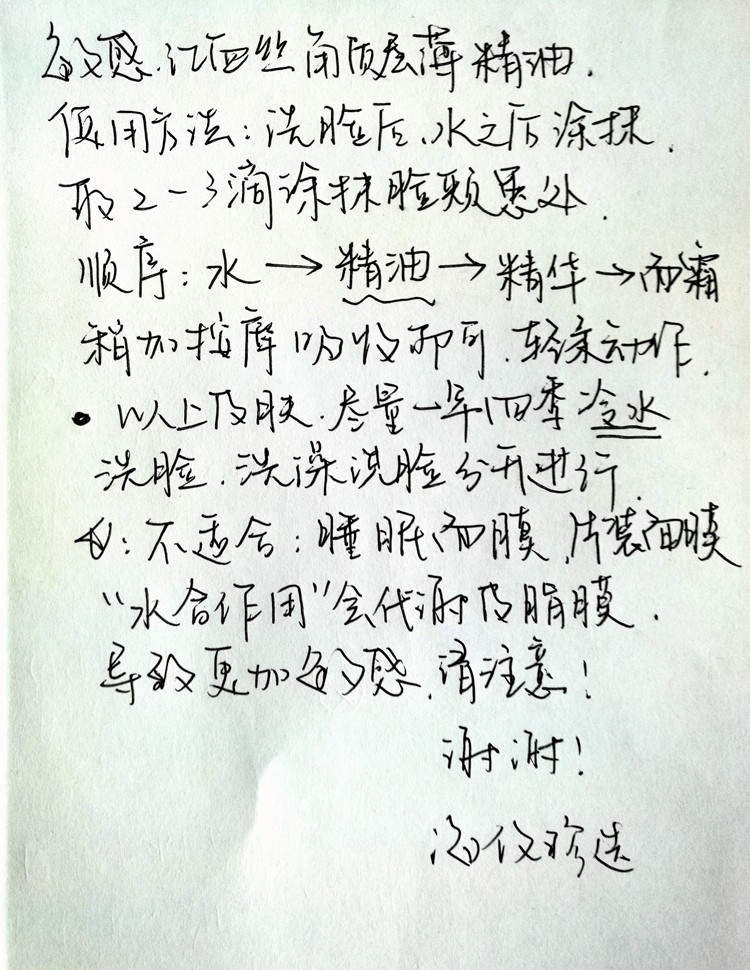 敏感.红血丝角质层薄精油.
使用方法:洗脸后.水之后涂抹.
取2-3滴涂抹脸颊患处.
顺序:水→精油→精华→面霜
稍加按摩吸收即可.轻柔动作.
• 以上皮肤.尽量一年四季冷水
洗脸.洗澡洗脸分开进行.
☆:不适合:睡眠面膜,片装面膜
“水合作用”会代谢皮脂膜.
导致更加敏感.请注意!
谢谢!